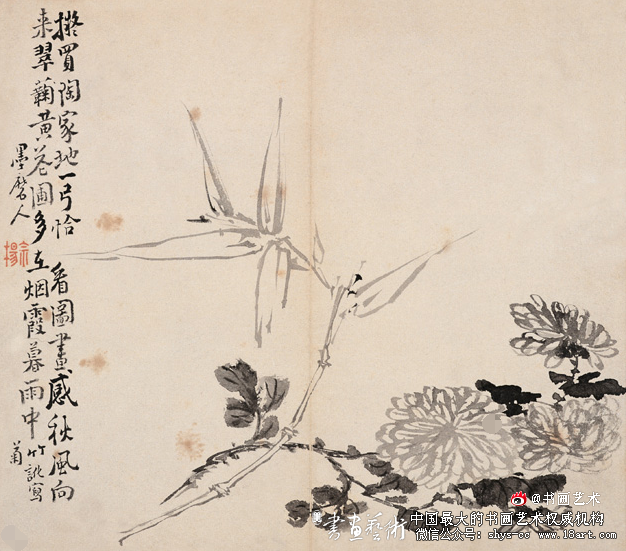 擬買陶家地一弓恰看圖畫感秋風向
来翠蘜黄花圃多在烟霞暮雨中
竹寫
菊
墨磨人
@书画艺术
書画藝術
中国最大的书画艺术权威机构
微信公众号：shys-cc 官方网站：www.18art.com